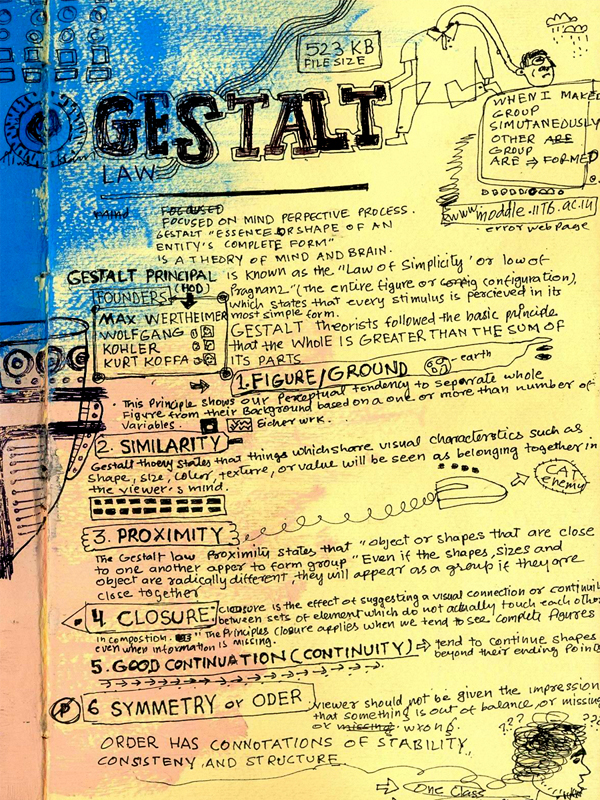 523 KB
FILE SIZE
GESTALT
LAW
WHEN I MAKED
GROUP
SIMUTANEOUSLY
OTHER ARE
GROUP
ARE ⇒ FORMED
error web page
mind FOCUSED
FOCUSED ON MIND PERPECTIVE PROCESS.
GESTALT "ESSENCE OR SHAPE OF AN
ENTITY'S COMPLETE FORM"
IS A THEORY OF MIND AND BRAIN.
GESTALT PRINCIPAL is known as the "Law of Simplicity' or low of
(HOD)
FOUNDERS
Pragnanz" (the entire figure or config configuration),
which states that every stimulus is percieved in its
most simple form.
MAX WERTHEIMER
WOLFGANG
KOHLER
KURT KOFFA
GESTALT Theorists followed the basic principle
that the WHOLE IS GREATER THAN THE SUM OF
ITS PARTS
1. FIGURE/GROUND - earth
• This Principle shows our Perceptual tendency to seperate whole
Figure from their Background based on a one or more than number of
Variables. Eicher wrk.
2. SIMILARITY
Gestalt theory states that things which share visual characterstics such as
Shape, size, color, texture, or value will be seen as belonging together in
the viewer's mind.
CAT
enemy
3. PROXIMITY
The Gestalt law Proximity states that "object or shapes that are close
to one another apper to form group" Even if the shapes, sizes and
object are radically different, they will appear as a group if they are
close together
4. CLOSURE: Closure is the effect of suggesting a visual connection or continui
between sets of element which do not actually touch each othe
in compostion. "The Principles closure applies when we tend to see complete figures
even when information is missing.
5. GOOD CONTINUATION (CONTINUITY) ⇒ tend to continue shapes
beyond their ending Points
P 6 SYMMETRY or ODER
viewer should not be given the impression
that something is out of balance, or missing
or missing wrong.
???
ORDER HAS CONNOTATIONS OF STABILITY,
CONSISTENY AND STRUCTURE.
⇒ One Class